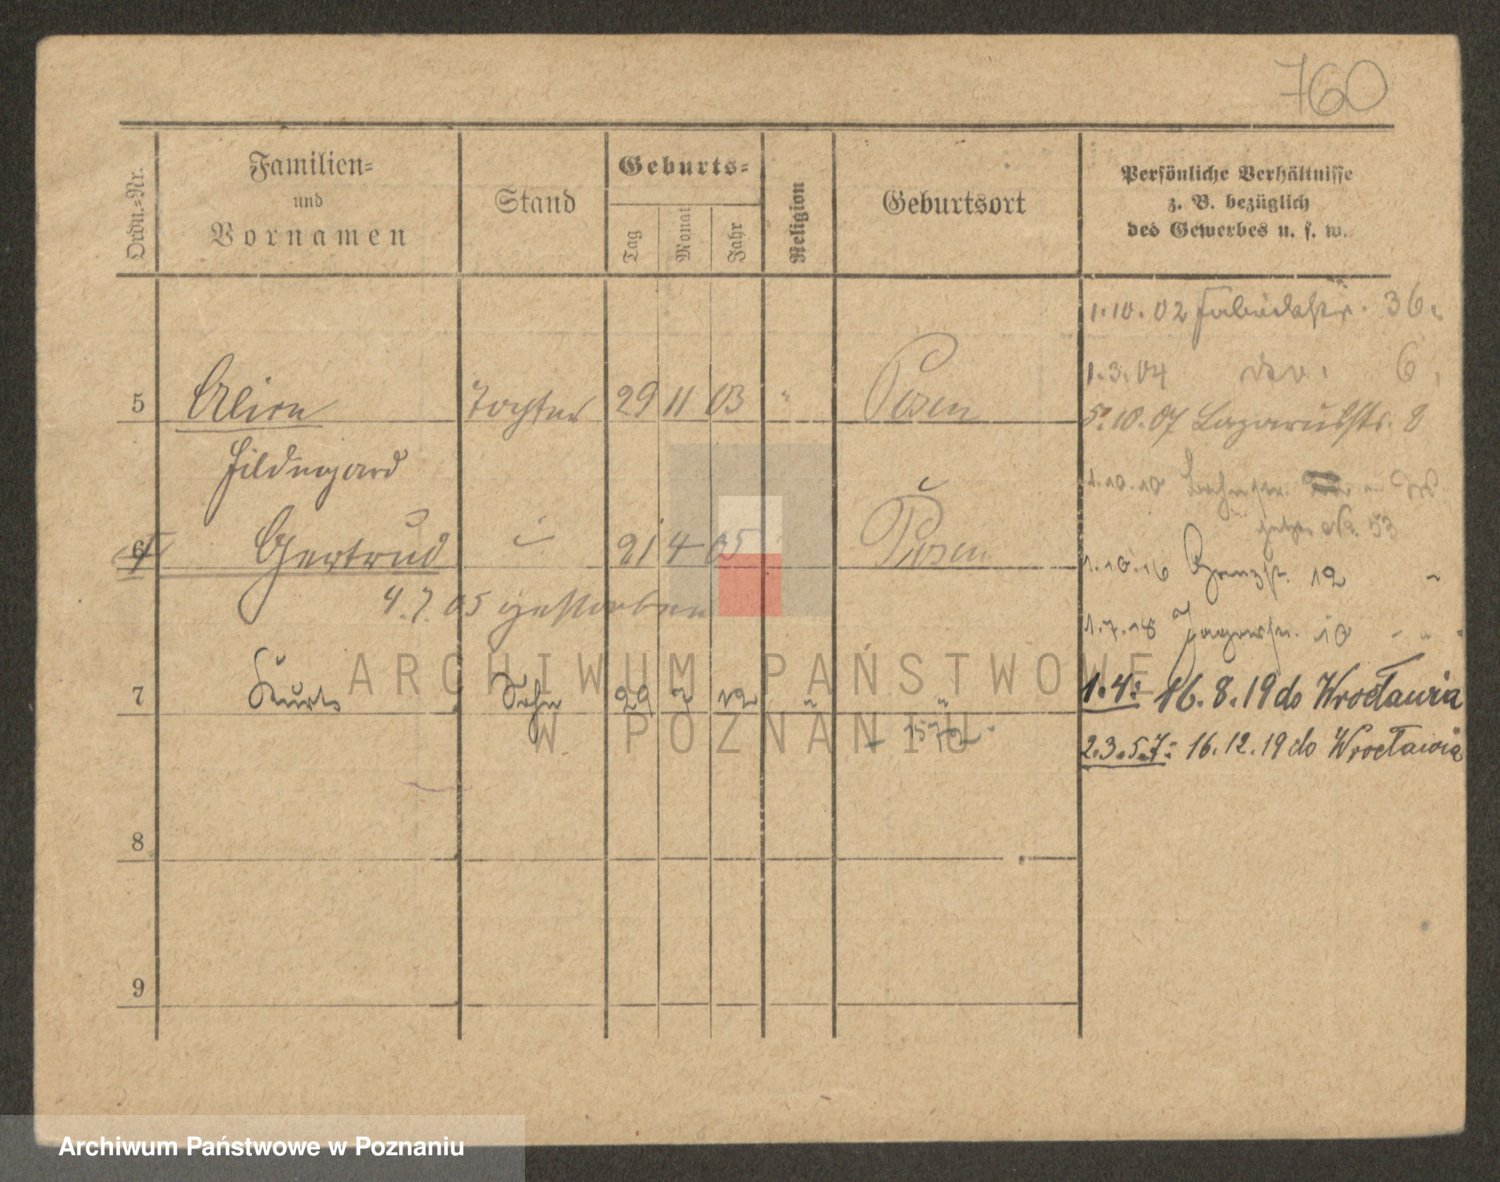 760
Ordn.-Nr.
Familien-
und
Vornamen
Stand
Geburts-
Tag
Monat
Jahr
Religion
Geburtsort
Persönliche Verhältnisse
z. B. bezüglich
des Gewerbes u. s. w.
1.10.02 36.
1.3.04 6,
5 Tochter 29 11 03 " Posen
5.10.07 Lazarusstr. 8
Hildegard
1.10.10
No. 53
6 Gertrud 21 4 05 Posen
1.10.16 12
4.7.05 gestorben
1.7.18 10
7 Kurt Sohn 29 12 " "
1.4: 16.8.19 do Wrocławia
2.3.5.7: 16.12.19 do Wrocławia
8
9
ARCHIWUM PAŃSTWOWE
W POZNANIU
Archiwum Państwowe w Poznaniu